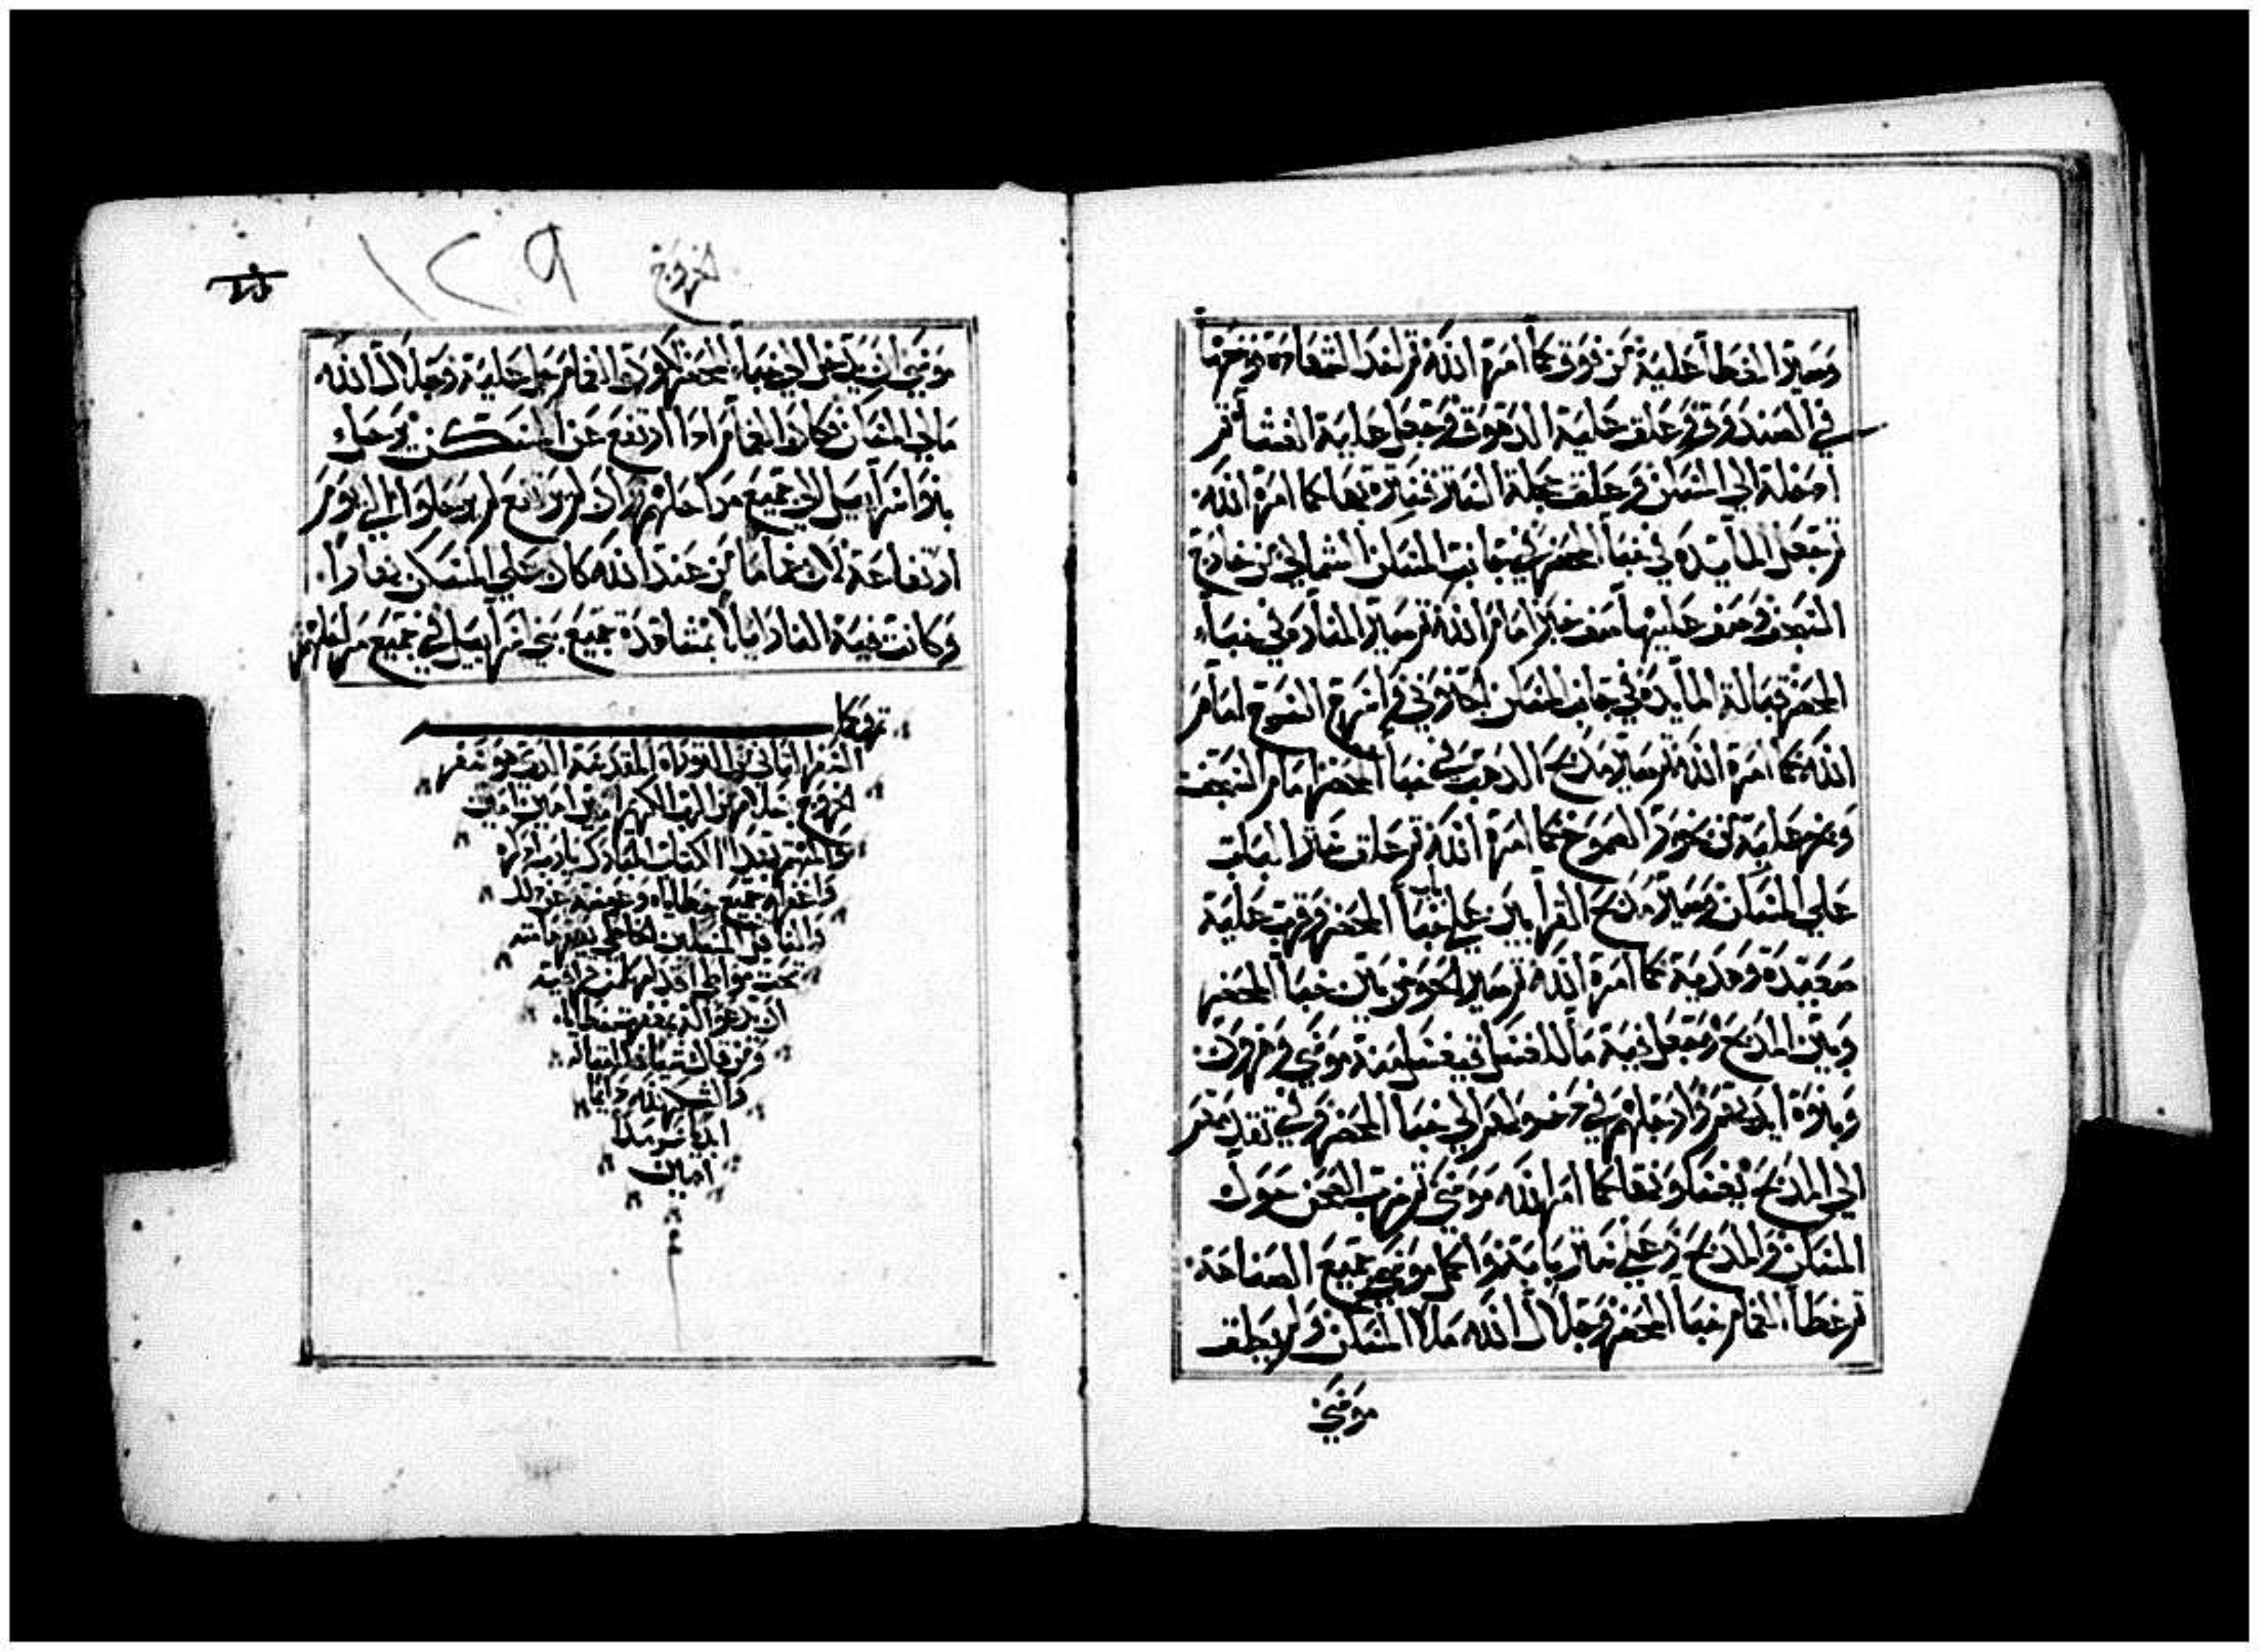 وصير الغطا عليه من فوق كما امره الله ثم اخذ الشهاده وتركها
في الصندوق وعلق عليه الدهوق وجعل عليه الغشا ثم
ادخله الى المسكن وعلق عجلة الستر فستره بها كما امره الله
ثم جعل المايده في خبا المحضر في جانب المسكن الشمالي من خارج
السجف وصف عليها صف خبز امام الله ثم صير المناره في خباء
المحضر قبالة المايده في جانب المسكن الجنوبي واسرج السرج امام
الله كما امره الله ثم صير مذبح الذهب في خبا المحضر امام السجف
وبخر عليه من بخور الصموغ كما امره الله ثم علق ستر الباب
على المسكن وصير مذبح القرابين على باب خبا المحضر وقرب عليه
صعيدة وهدية كما امره الله ثم صير الحوض بين خبا المحضر
وبين المذبح وجعل فيه ما للغسل فيغسل منه موسى وهرون
وبنوه ايديهم وارجلهم في دخولهم الى خبا المحضر وفي تقدمهم
الى المذبح يغسلون كما امر الله موسى ثم نصب الصحن حول
المسكن والمذبح وعلى ستر بابه واكمل موسى جميع الصناعه
ثم غطا الغمام خبا المحضر وجلال الله ملا المسكن ولم يطق
موسى
خروج
١٢٩
موسى ان يدخل الى خباء المحضر لان الغمام حل عليه وجلال الله
مالي المسكن فكان الغمام اذا ارتفع عن المسكن يرحل
بنوا اسراييل في جميع مراحلهم وان لم يرتفع لم يرحلوا الى يوم
ارتفاعه لان غماما من عند الله كان على المسكن نهارا
وكانت فيه النار ليلا بمشاهدة جميع بني اسراييل في جميع مراحلهم
تم وكمل
السفر الثاني من التوراة المقدسة الذي هو سفر
الخروج بسلام من الرب امين امين
واغفر له جميع خطاياه
والشكر لله دايما
ابديا سرمدا
امين